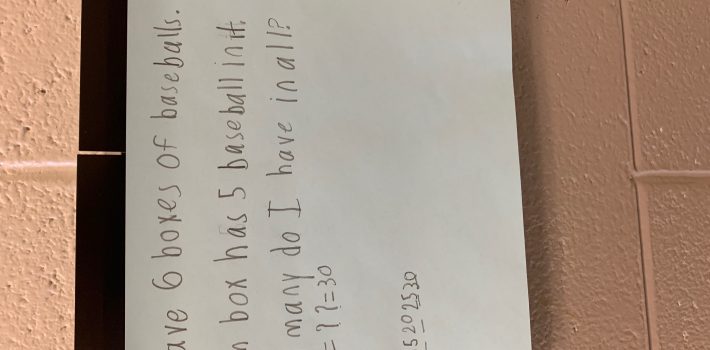 ave 6 boxes of baseballs.
box has 5 baseball in it.
many do I have in all?
= ? ?=30
5 20 25 30